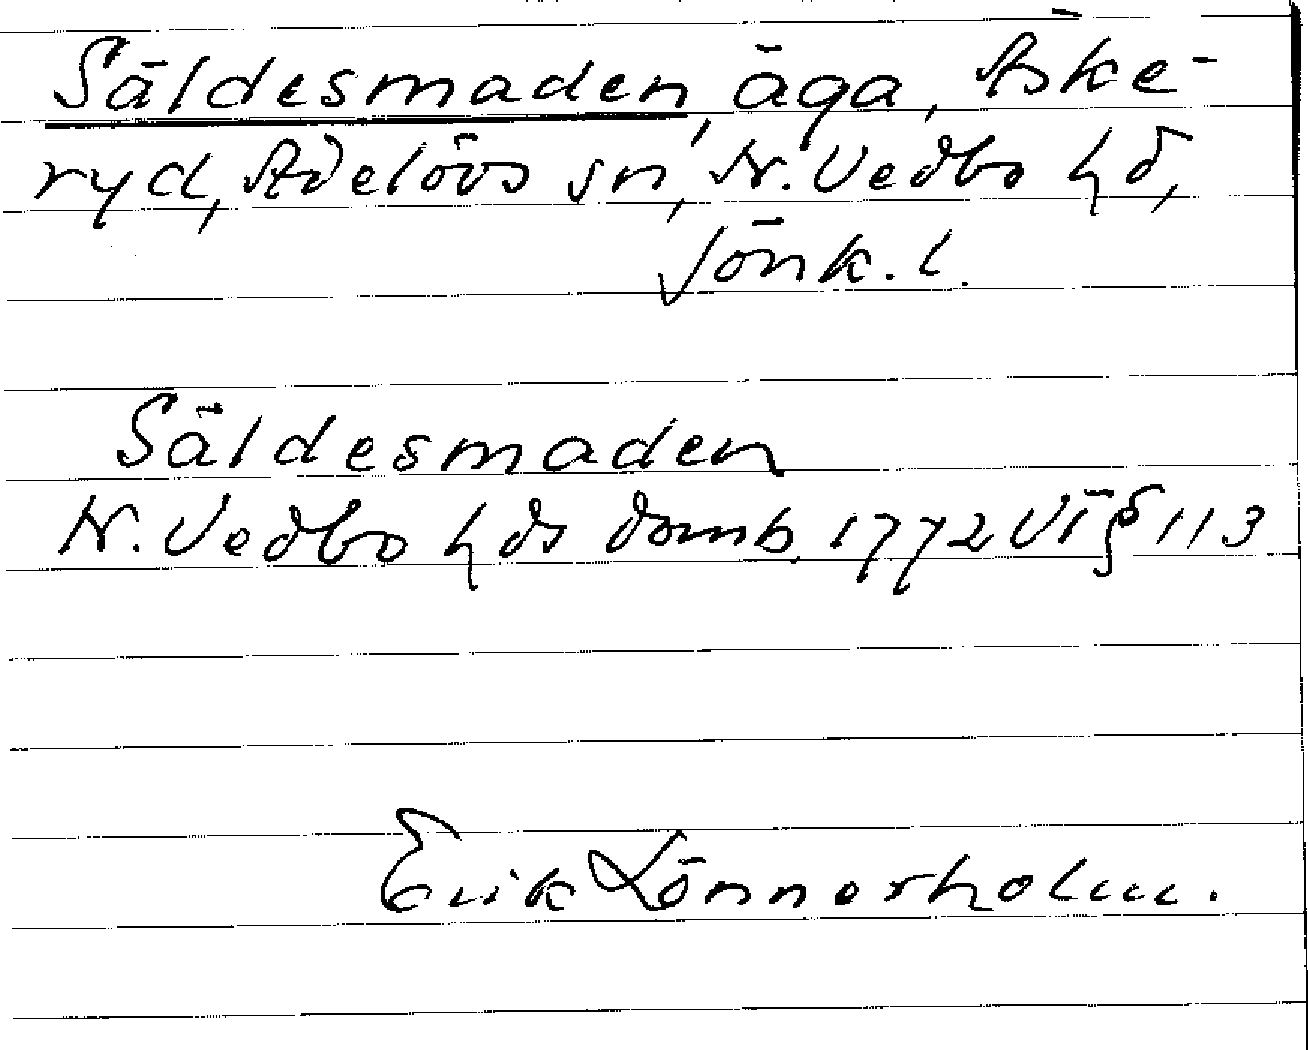 Säldesmaden, äga, Aske-
ryd, Adelövs sn, N. Vedbo hd,
Jönk. l.
Säldesmaden
N. Vedbo hds domb. 1772 VI § 113
Erik Lönnerholm.